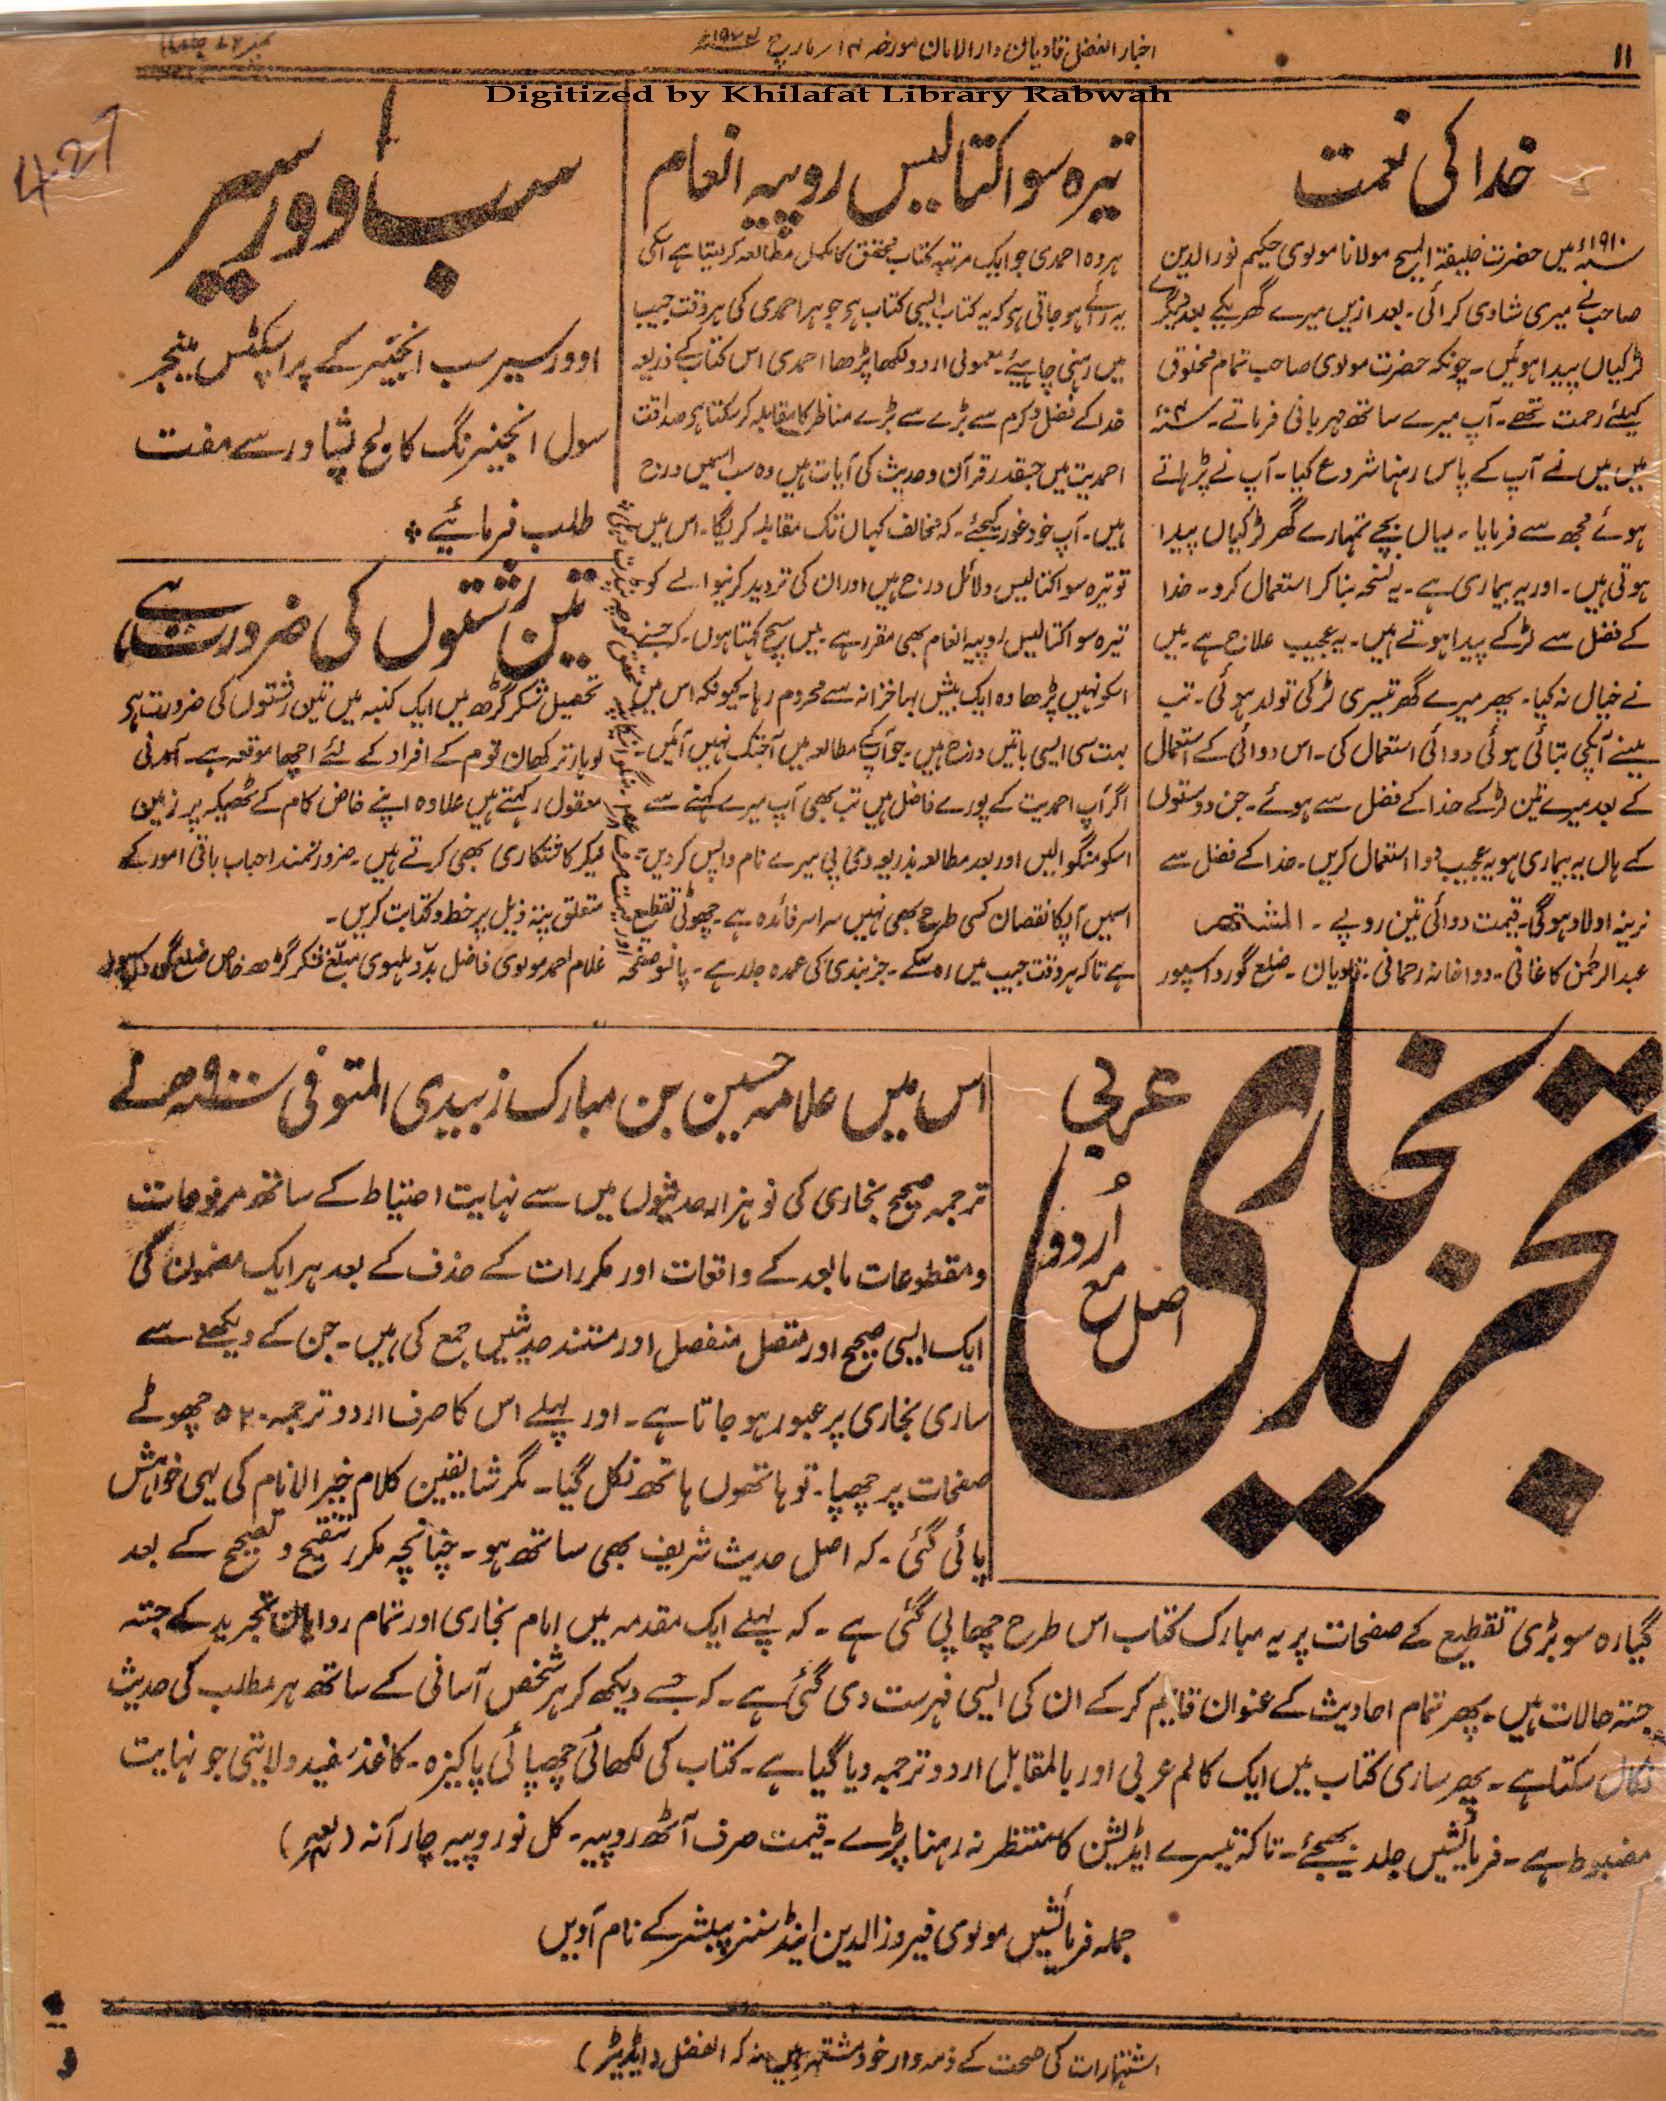 ۱۱
اخبار الفضل قادیان دارالامان مورخہ ۱۴ مارچ
Digitized by Khilafat Library Rabwah
427
خدا کی نعمت
۱۹۱۰ء میں حضرت خلیفۃ المسیح مولانا مولوی حکیم نورالدین
صاحب نے میری شادی کرائی۔ بعد ازیں میرے گھر یکے بعد دیگرے
لڑکیاں پیدا ہوئیں۔ چونکہ حضرت مولوی صاحب تمام مخلوق
کیلئے رحمت تھے۔ آپ میرے ساتھ مہربانی فرماتے۔
میں میں نے آپ کے پاس رہنا شروع کیا۔ آپ نے پڑہاتے
ہوئے مجھ سے فرمایا۔ میاں بچے تمہارے گھر لڑکیاں پیدا
ہوتی ہیں۔ اور یہ بیماری ہے۔ یہ نسخہ بنا کر استعمال کرو۔ خدا
کے فضل سے لڑکے پیدا ہوتے ہیں۔ یہ عجیب علاج ہے۔ میں
نے خیال نہ کیا۔ پھر میرے گھر تیسری لڑکی تولد ہوئی۔ تب
مینے آپکی بتائی ہوئی دوائی استعمال کی۔ اس دوائی کے استعمال
کے بعد میرے تین لڑکے خدا کے فضل سے ہوئے۔ جن دوستوں
کے ہاں یہ بیماری ہو یہ عجیب دوا استعمال کریں۔ خدا کے فضل سے
نرینہ اولاد ہوگی۔ قیمت دوائی تین روپے۔ المشتھر
عبدالرحمٰن کاغانی۔ دواخانہ رحمانی۔ قادیان۔ ضلع گورداسپور
تیرہ سو اکتالیس روپیہ انعام
ہر وہ احمدی جو ایک مرتبہ کتاب محقق کا مکمل مطالعہ کر لیتا ہے اسکی
یہ رائے ہو جاتی ہو کہ یہ کتاب ایسی کتاب ہو جو ہر احمدی کی ہر وقت جیب
میں رہنی چاہیئے۔ معمولی اردو لکھا پڑھا احمدی اس کتاب کے ذریعہ
خدا کے فضل و کرم سے بڑے سے بڑے مناظر کا مقابلہ کر سکتا ہو صداقت
احمدیت میں جسقدر قرآن و حدیث کی آیات ہیں وہ سب اسمیں درج
ہیں۔ آپ خود غور کیجئے۔ کہ مخالف کہاں تک مقابلہ کریگا۔ اس میں
تو تیرہ سو اکتالیس دلائل درج ہیں اور ان کی تردید کرنیوالے کو
تیرہ سو اکتالیس روپیہ انعام بھی مقرر ہے۔ میں سچ کہتا ہوں۔ کہ جسنے
اسکو نہیں پڑھا وہ ایک بیش بہا خزانہ سے محروم رہا۔ کیونکہ اس میں
بہت سی ایسی باتیں درج ہیں۔ جو آپکے مطالعہ میں آجتک نہیں آئیں۔
اگر آپ احمدیت کے پورے فاضل ہیں تب بھی آپ میرے کہنے سے
اسکو منگوالیں اور بعد مطالعہ بذریعہ وی پی میرے نام واپس کردیں۔
اسمیں آپکا نقصان کسی طرح بھی نہیں سراسر فائدہ ہے۔ چھوٹی تقطیع
ہے تاکہ ہر وقت جیب میں رہ سکے۔ جزبندی کی عمدہ جلد ہے۔ پانسو صفحہ
سب اوورسیر
اوورسیر سب انجنیئر کے پراسپکٹس مینجر
سول انجنیئرنگ کالج پشاور سے مفت
طلب فرمائیے
تین رشتوں کی ضرورت ہے
تحصیل شکرگڑھ میں ایک کنبہ میں تین رشتوں کی ضرورت ہو
لوہار ترکھان قوم کے افراد کے لئے اچھا موقعہ ہے۔ آمدنی
معقول رکہتے ہیں علاوہ اپنے خاص کام کے ٹھیکہ پر زمین
لیکر کاشتکاری بھی کرتے ہیں۔ ضرورتمند احباب باقی امور کے
متعلق پتہ ذیل پر خط و کتابت کریں۔
غلام احمد مولوی فاضل بدوملہوی مبلغ شکرگڑھ خاص ضلع گورداسپور
تجرید بخاری
عربی
اُردو
مع
اصل
اس میں علامہ حسین بن مبارک زبیدی المتوفی ۹۰۰ھ نے
ترجمہ صحیح بخاری کی نو ہزار حدیثوں میں سے نہایت احتیاط کے ساتھ مرفوعات
و مقطوعات مابعد کے واقعات اور مکررات کے حذف کے بعد ہر ایک مضمون کی
ایک ایسی صحیح اور متصل منفصل اور مستند حدیثیں جمع کی ہیں۔ جن کے دیکھنے سے
ساری بخاری پر عبور ہو جاتا ہے۔ اور پہلے اس کا صرف اردو ترجمہ ۵۲۰ چھوٹے
صفحات پر چھپا۔ تو ہاتھوں ہاتھ نکل گیا۔ مگر شایقین کلام خیر الانام کی یہی خواہش
پائی گئی۔ کہ اصل حدیث شریف بھی ساتھ ہو۔ چنانچہ مکرر تنقیح و تصحیح کے بعد
گیارہ سو بڑی تقطیع کے صفحات پر یہ مبارک کتاب اس طرح چھاپی گئی ہے۔ کہ پہلے ایک مقدمہ میں امام بخاری اور تمام روایان تجرید کے جستہ
جستہ حالات ہیں۔ پھر تمام احادیث کے عنوان قایم کر کے ان کی ایسی فہرست دی گئی ہے۔ کہ جسے دیکھ کر ہر شخص آسانی کے ساتھ ہر مطلب کی حدیث
نکال سکتا ہے۔ پھر ساری کتاب میں ایک کالم عربی اور بالمقابل اردو ترجمہ دیا گیا ہے۔ کتاب کی لکھائی چھپائی پاکیزہ۔ کاغذ سفید ولایتی جو نہایت
مضبوط ہے۔ فرمائشیں جلد بھیجئے۔ تاکہ تیسرے ایڈیشن کا منتظر نہ رہنا پڑے۔ قیمت صرف آٹھ روپیہ۔ کل نو روپیہ چار آنہ
جملہ فرمائشیں مولوی فیروزالدین اینڈ سنز پبلشر کے نام آویں
اشتہارات کی صحت کے ذمہ وار خود مشتہر ہیں نہ کہ الفضل (ایڈیٹر)